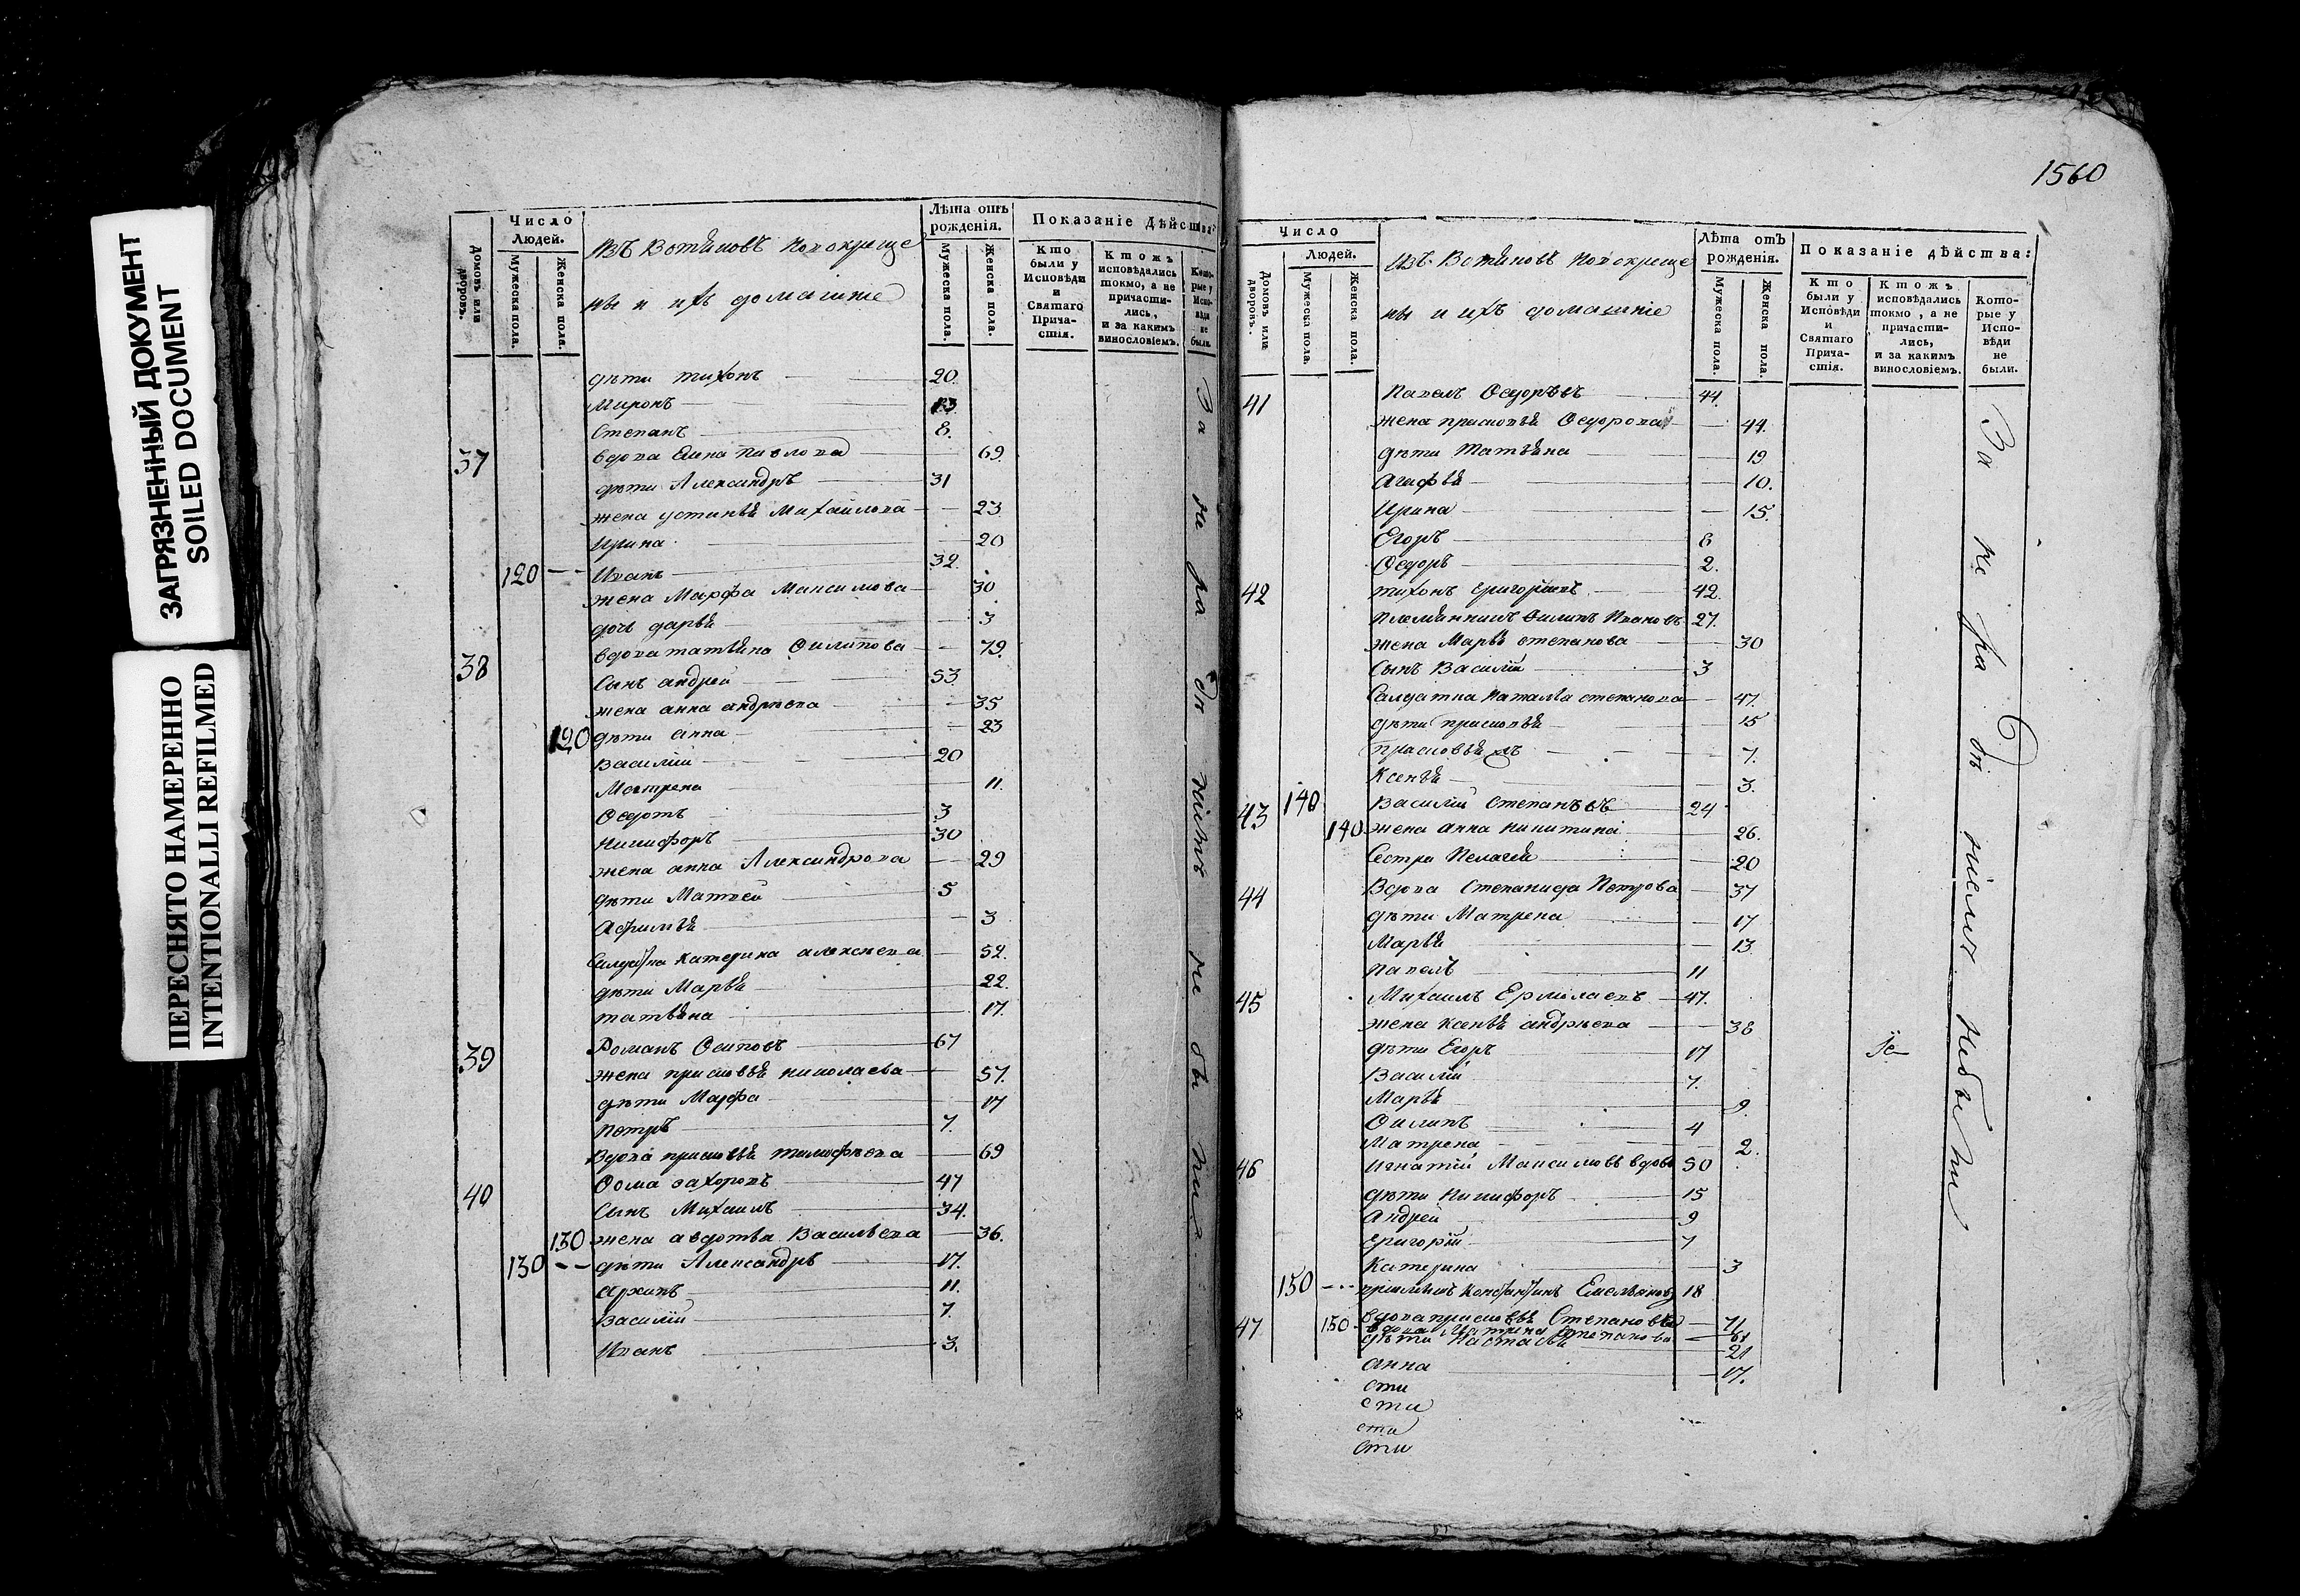 ЗАГРЯЗНЕННЫЙ ДОКУМЕНТ
SOILED DOCUMENT
ПЕРЕСНЯТО НАМЕРЕННО
INTENTIONALLI REFILMED
Домовъ или дворовъ.
Число Людей.
Мужеска пола.
Женска пола.
Изъ Вотяковъ новокреще
ны и ихъ домашніе
Лѣта отъ рожденія.
Мужеска пола.
Женска пола.
Показаніе Дѣйства:
Кто были у Исповѣди и Святаго Прича-стія.
Ктожъ исповѣдались токмо, а не причасти-лись, и за какимъ винословіемъ.
Кото-рые у Испо-вѣди не были.
дѣти тихонъ 20.
Миронъ 13
Степанъ 8.
37 вдова Анна Павлова 69
дѣти Александръ 31
жена устинья Михайлова 23
Ирина 20
120 Иванъ 32
жена Марфа Максимова 30
дочь дарья 3
38 вдова татьяна Филипова 79.
Сынъ андрей 53
жена анна андрѣева 35
120 дѣти анна 23
Василій 20
Матрена 11.
Федотъ 3
Никифоръ 30
жена анна Александрова 29
дѣти Матвей 5
Афимья 3
Салдатка катерина алексѣева 52.
дѣти Марья 22.
татьяна 17.
39 Романъ Осиповъ 67
жена прасковья николаева 57.
дѣти Марфа 17
Петръ 7.
Вдова прасковья тимофѣева 69
40 Фома захоровъ 47
Сынъ Михаилъ 34.
130 жена авдотья Васильева 36.
130 дѣти Александръ 17.
архипъ 11.
Василій 7.
Иванъ 3.
За не ра де ніемъ не бы ли
1560
Домовъ или дворовъ.
Число Людей.
Мужеска пола.
Женска пола.
Изъ Вотяковъ новокреще
ны и ихъ домашніе
Лѣта отъ рожденія.
Мужеска пола.
Женска пола.
Показаніе дѣйства:
Кто были у Исповѣди и Святаго Прича-стія.
Ктожъ исповѣдались токмо, а не причасти-лись, и за какимъ винословіемъ.
Кото-рые у Испо-вѣди не были.
41 Павелъ Федоровъ 44.
жена прасковья Федорова 44.
дѣти Татьяна 19
Агафья 10.
Ирина 15.
Егоръ 8
Федоръ 2.
42 тихонъ григорьевъ 42.
Племянникъ Филипъ Ивановъ 27.
жена Марья степанова 30
Сынъ Василій 3
Салдатка Наталья степанова 47.
дѣти прасковья 15
прасковья 7.
Ксенья 3.
43 140 Василій Степановъ 24
140 жена анна никитина 26.
Сестра Пелагея 20
44 Вдова Степанида Петрова 37
дѣти Матрена 17
Марья 13
Павелъ 11
45 Михаилъ Ермолаевъ 47.
жена ксенья андрѣева 38
дѣти Егоръ 17
Василій 7.
Марья 9.
Филипъ 4
Матрена 2.
46 Игнатій Максимовъ вдовъ 50
дѣти Никифоръ 15
Андрей 9
григорій 7
Катерина 3
150 Емельяновъ 18
47 150 вдова прасковья Степанова 71
вдова Матрена Степанова 61
дѣти Настасья 21
анна 17.
сти
сти
сти
сти
За не ра де ніемъ небы ли